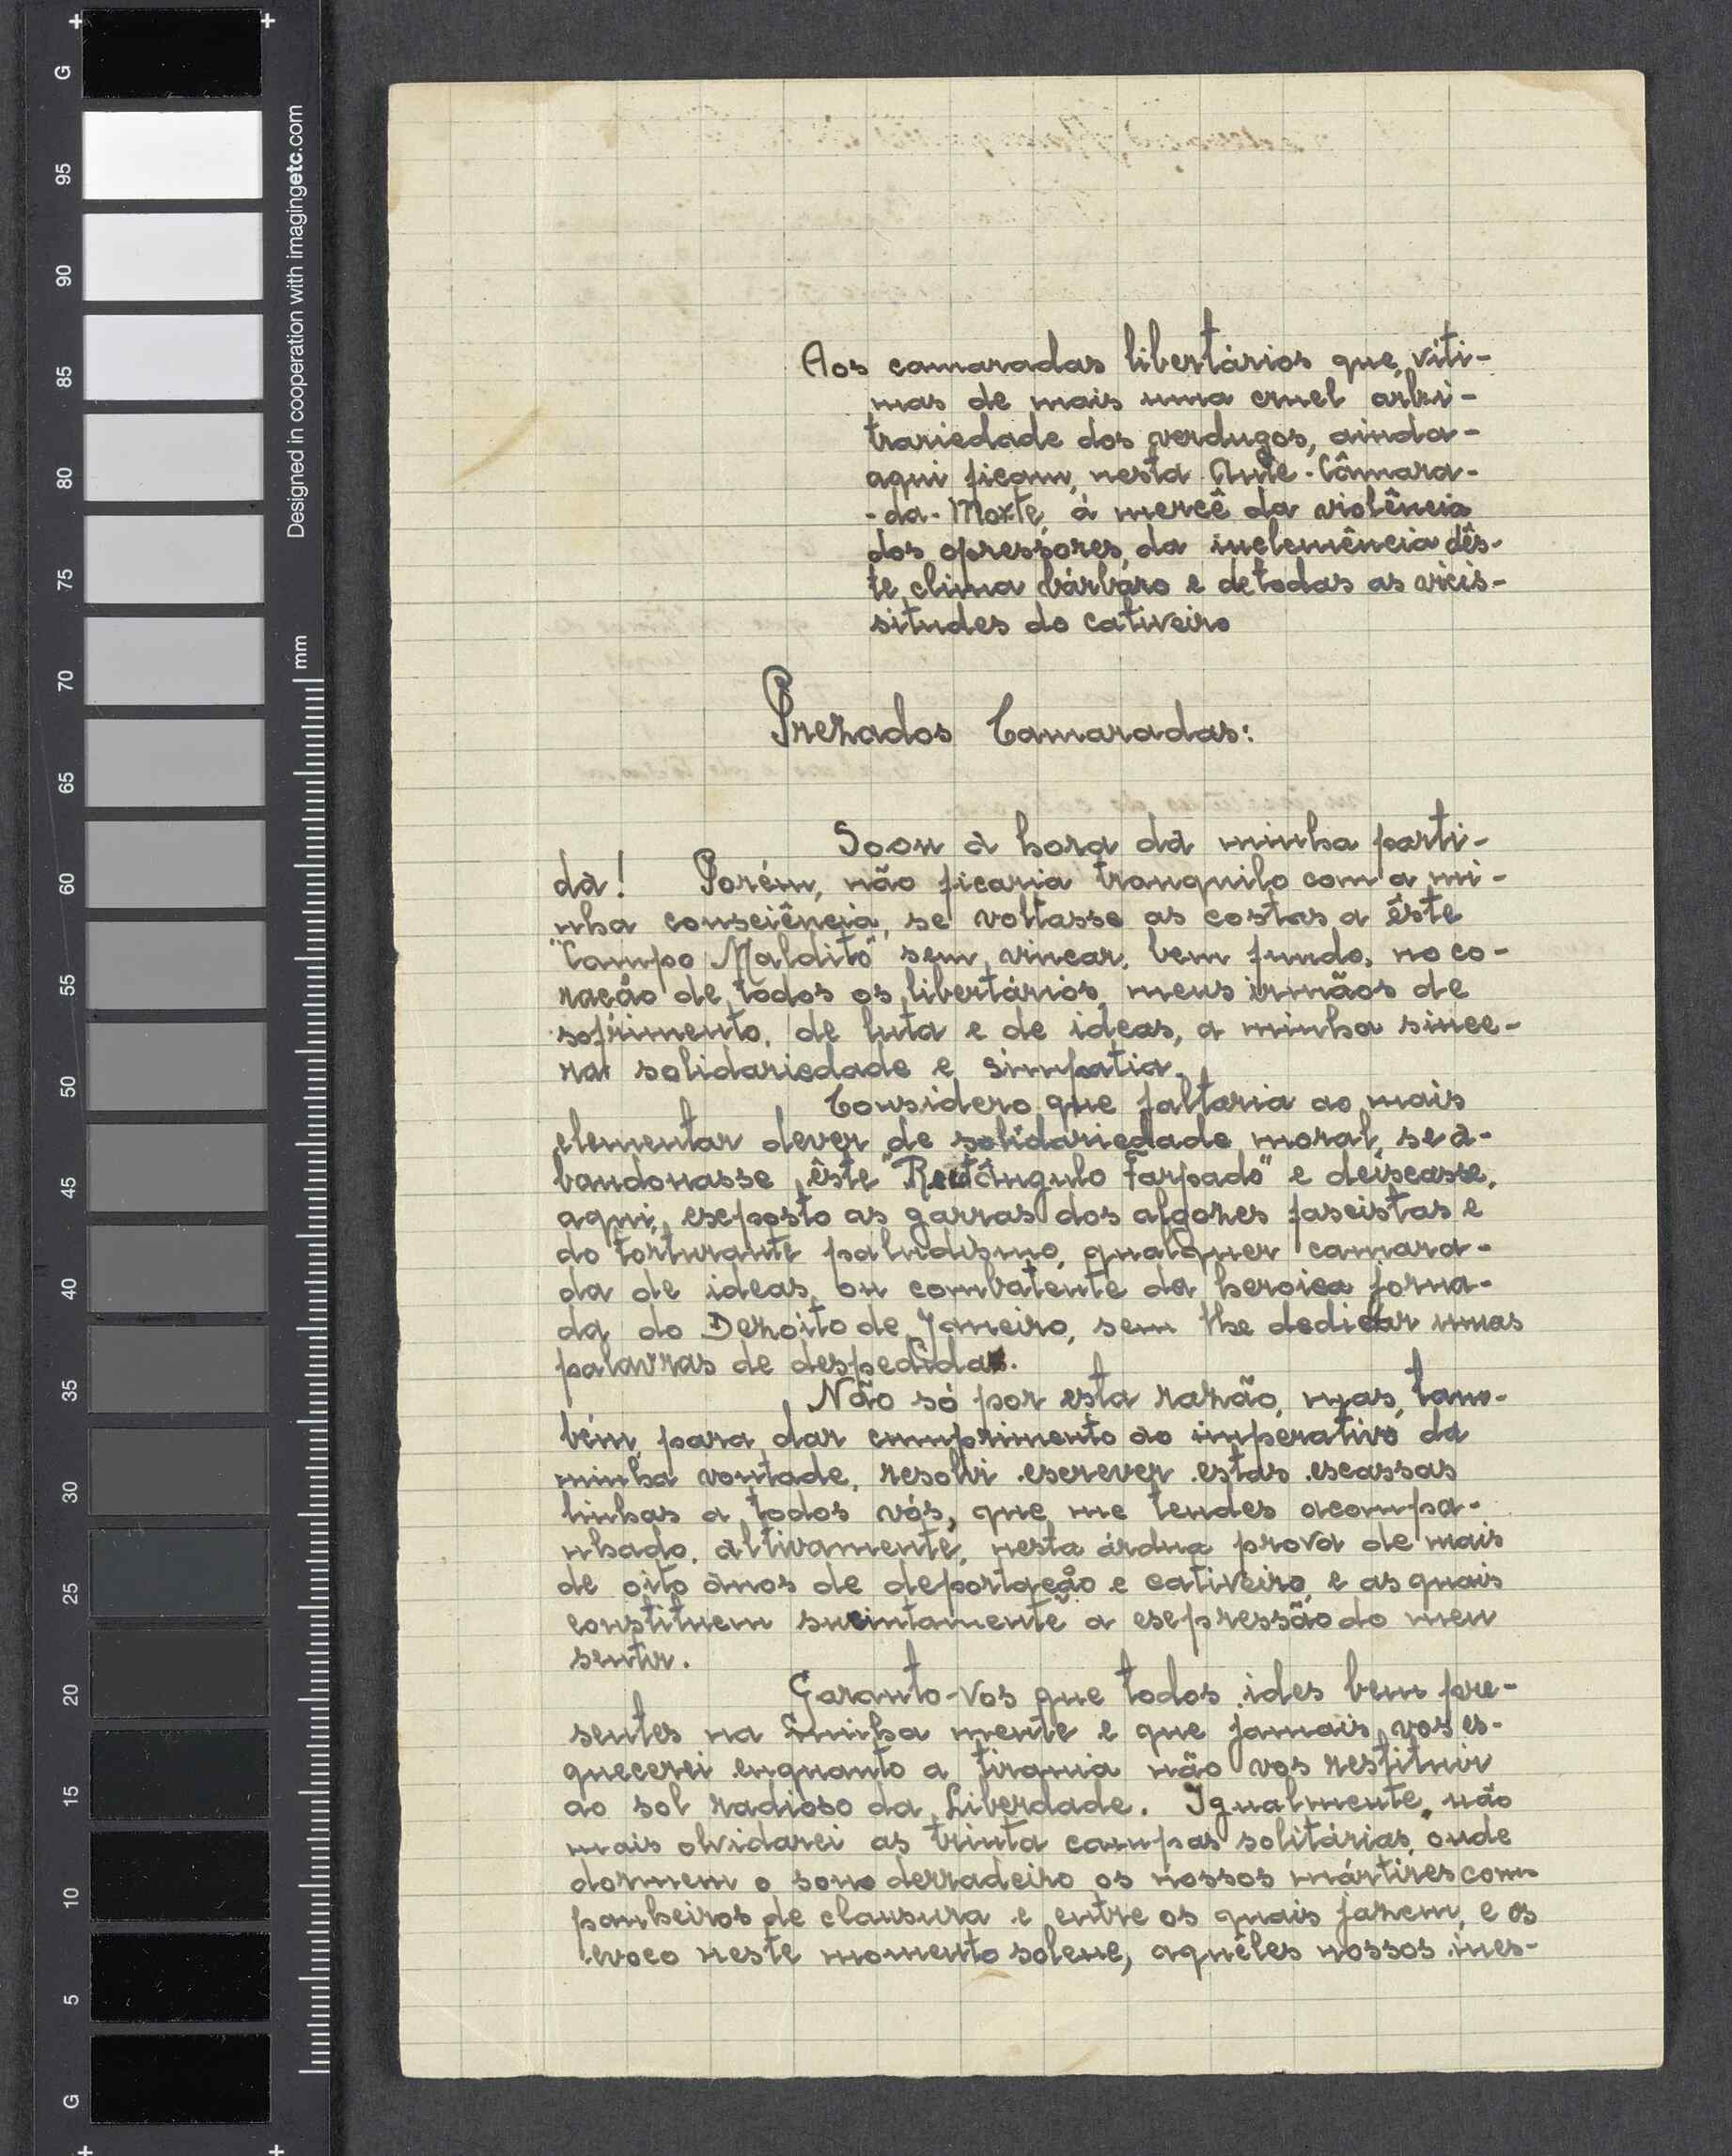 Aos camaradas libertários que, víti-
mas de mais uma cruel arbi-
trariedade dos verdugos, ainda-
aqui ficam, nesta Ante-Câmara-
-da-Morte, à mercê da violência
dos opressores, da inclemência dês-
te clima bárbaro e de todas as vicis-
situdes do cativeiro
Prezados Camaradas:
Soou à hora dà minha parti-
dà! Porém, não ficaria tranquilo com a mi-
nha consciência, se voltasse as costas a êste
"Campo Maldito" sem vincar, bem fundo, no co-
ração de todos os libertários, meus irmãos de
sofrimento, de luta e de ideas, a minha since-
ra solidariedade e simpatia.
Considero que faltaria ao mais
elementar dever de solidariedade moral, se à-
bandonasse êste "Rectângulo Farpado" e deixasse,
aqui, exposto as garras dos algozes fascistas e
do torturante paludismo, qualquer camara-
da de ideas, ou combatente da heroica jorna-
da do Dezoito de Janeiro, sem lhe dedicar umas
palavras de despedida.
Não só por esta razão, mas, tam-
bém, para dar cumprimento ao imperativo da
minha vontade, resolvi escrever estas escassas
linhas a todos vós, que me tendes acompa-
nhado, altivamente, nesta árdua prova de mais
de oito ànos de deportação e cativeiro, e as quais
constituem sucintamente a expressão do meu
sentir.
Garanto-vos que todos ides bem pre-
sentes na minha mente e que jamais vos es-
quecerei enquanto a tirania não vos restituir
ao sol radioso da Liberdade. Igualmente, não
mais olvidarei as trinta campas solitárias, onde
dormem o sono derradeiro os nossos mártires com
panheiros de clausura e entre os quais jazem, e os
evoco neste momento solene, aquêles nossos ines-
G
95
90
85
80
75
70
65
60
55
50
45
40
35
30
25
20
15
10
5
G
mm
Designed in cooperation with imagingetc.com